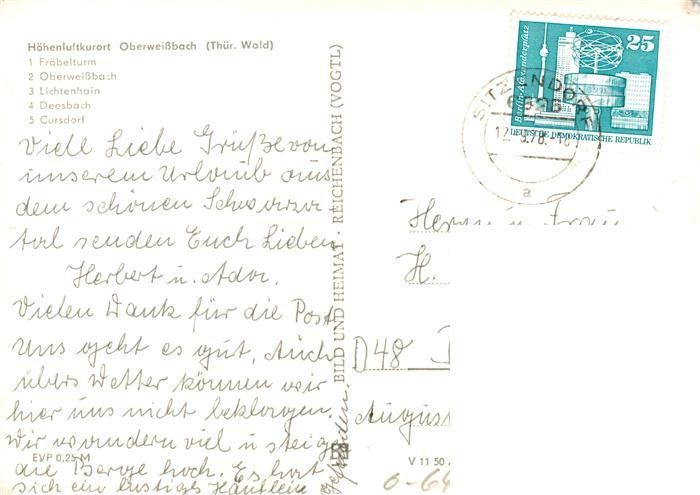 Höhenluftkurort Oberweißbach (Thür. Wald)
1 Fräbelturm
2 Oberweißbach
3 Lichtenhain
4 Deesbach
5 Cursdorf
Viele Liebe Grüße von
unserem Urlaub aus
dem schönen Schwarza-
tal senden Euch Lieben
Herbert u.
Vielen Dank für die Post
Uns geht es gut, Auch
übers Wetter können wir
hier uns nicht beklagen.
Wir wandern viel u steigen
die Berge hoch. Es hat
sich ein lustiges Häuflein
gefunden.
EVP 0,25 M
BILD UND HEIMAT · REICHENBACH (VOGTL)
V 11 50
Berlin-Alexanderplatz
25
DEUTSCHE DEMOKRATISCHE REPUBLIK
SITZENDORF
a
Herrn u Frau
H.
D 48
August